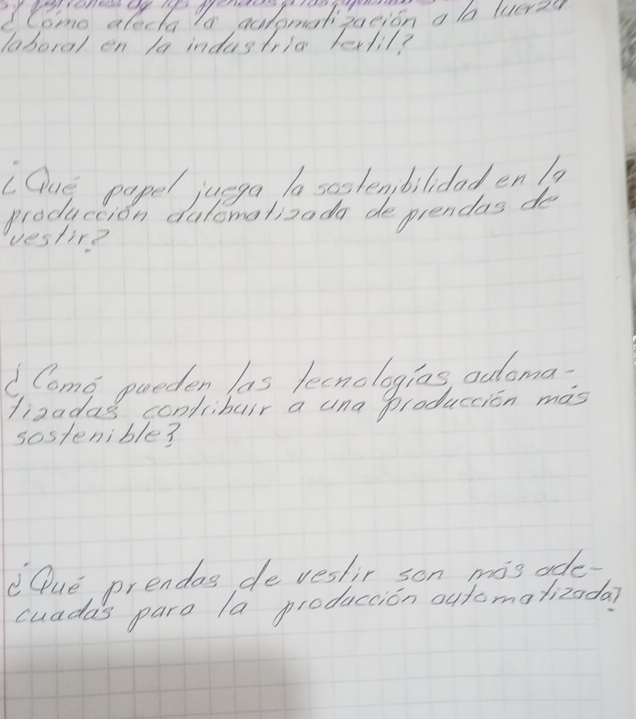 ¿Cómo afecta la automatización a la fuerza
laboral en la industria textil?
¿Qué papel juega la sostenibilidad en la
producción automatizada de prendas de
vestir?
¿Comó pueden las tecnologías automa-
tizadas contribuir a una producción más
sostenible?
¿Qué prendas de vestir son más ade-
cuadas para la producción automatizada?